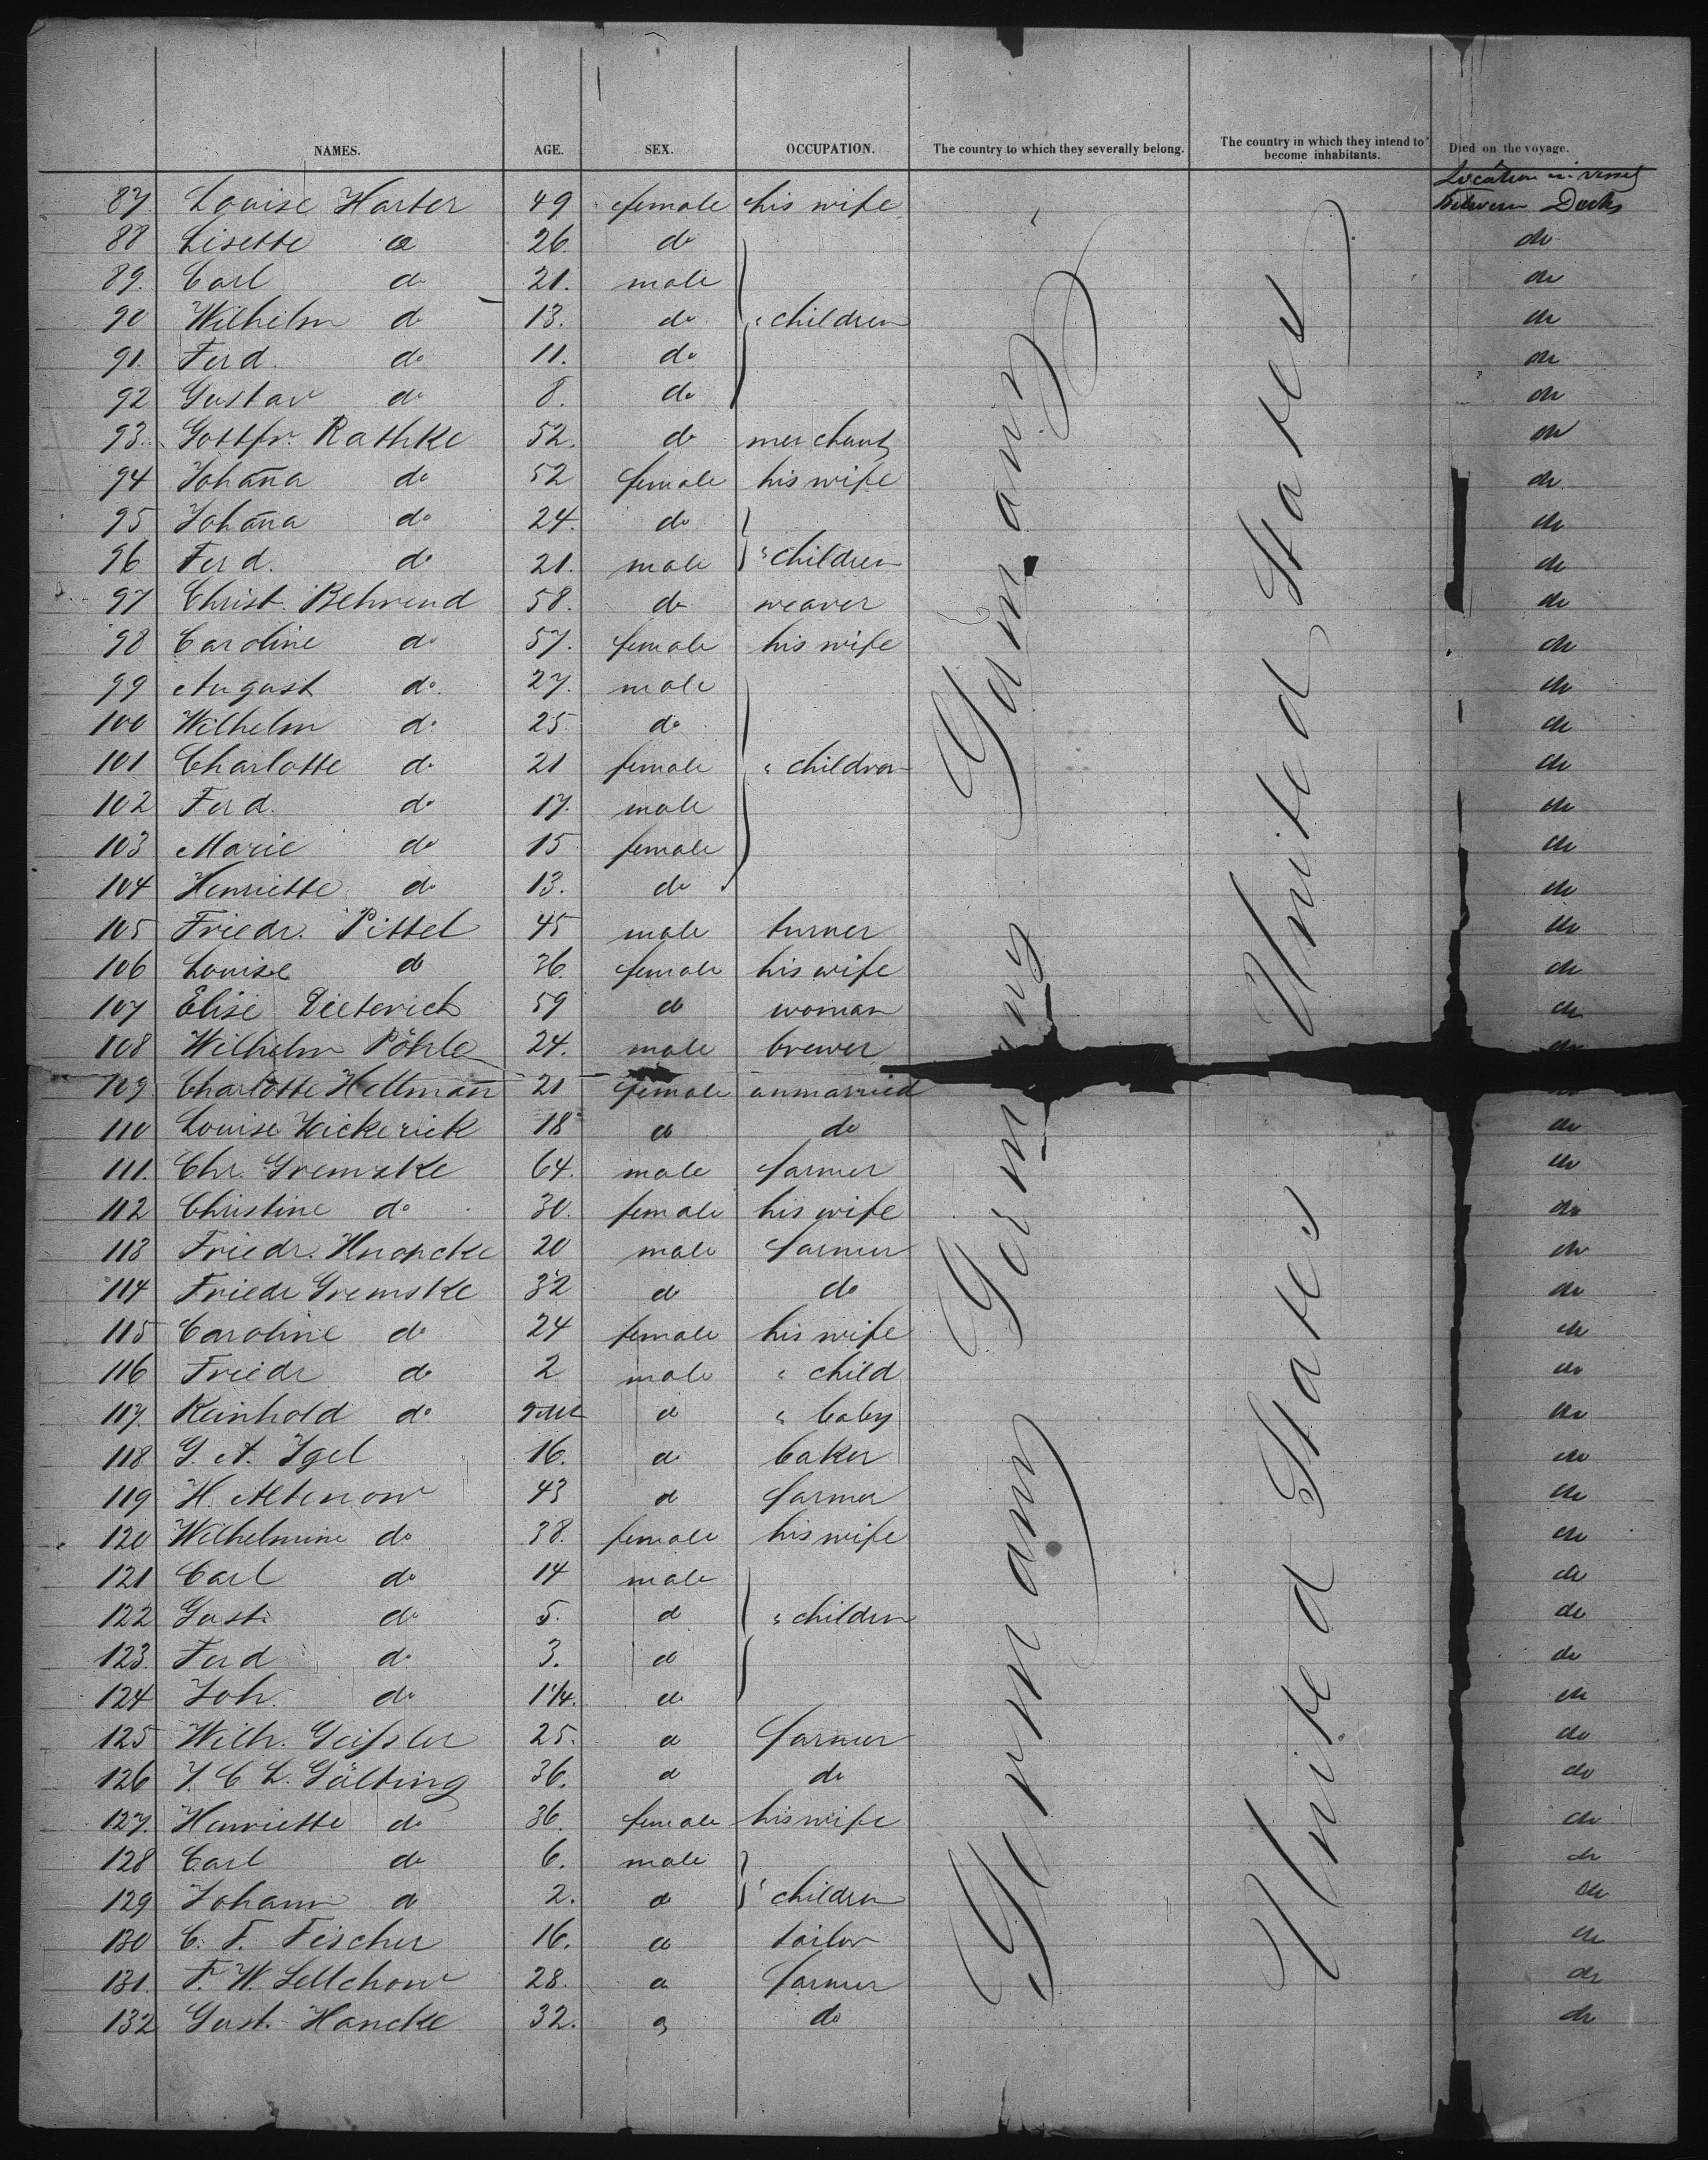 NAMES. AGE. SEX. OCCUPATION. The country to which they severally belong. The country in which they intend to become inhabitants. Died on the voyage.
Location in vessel
87 Louise Harter 49 female his wife Between Decks
88 Lisette do 26. do do
89. Carl do 21. male do
90 Wilhelm do 13. do " children do
91. Ferd. do 11. do do
92 Gustav do 8. do do
93. Gottfr. Rathke 52. do merchant do
94 Johana do 52 female his wife do
95 Johana do 24. do do
96 Ferd. do 21. male " children do
97 Christ. Behrend 58. do weaver do
98 Caroline do 57. female his wife do
99 August do. 27. male do
100 Wilhelm do. 25 do do
101 Charlotte do 21 female " children do
102 Ferd. do 17. male do
103 Marie do 15 female do
104 Henriette do 13. do do
105 Friedr. Pittel 45 male turner do
106 Louise do 36. female his wife do
107 Elise Dieterich 59 do woman do
108 Wilhelm Pöhle 24. male brewer do
109. Charlotte Heltmañ 21 female unmarried
110 Louise 18 do do do
111. Chr. Gremzke 64. male farmer do
112 Christine do 30. female his wife do
113 Friedr. Knopcke 20 male farmer do
114 Friedr Gremske 32 do do do
115 Caroline do 24 female his wife do
116 Friedr do 2 male " child do
117. Reinhold do do " baby do
118 G. A. Igel 16. do baker do
119 H. Altenow 43 do farmer do
120 Wilhelmine do 38. female his wife do
121 Carl do 14 male do
122 Gust. do 5. do " children do
123. Ferd do. 3. do do
124 Joh. do 1 1/4. do do
125 Wilh. Geißler 25. do farmer do
126 J C L. Gälting 36. do do do
127. Henriette do 36. female his wife do
128 Carl do 6. male do
129 Johann do 2. do " children do
130 C. F. Fischer 16. do tailor do
131. F. W. Sellchow 28. do farmer do
132 Gust. Hancke 32. do do do
Germany
Germany
Germany
United States
United States